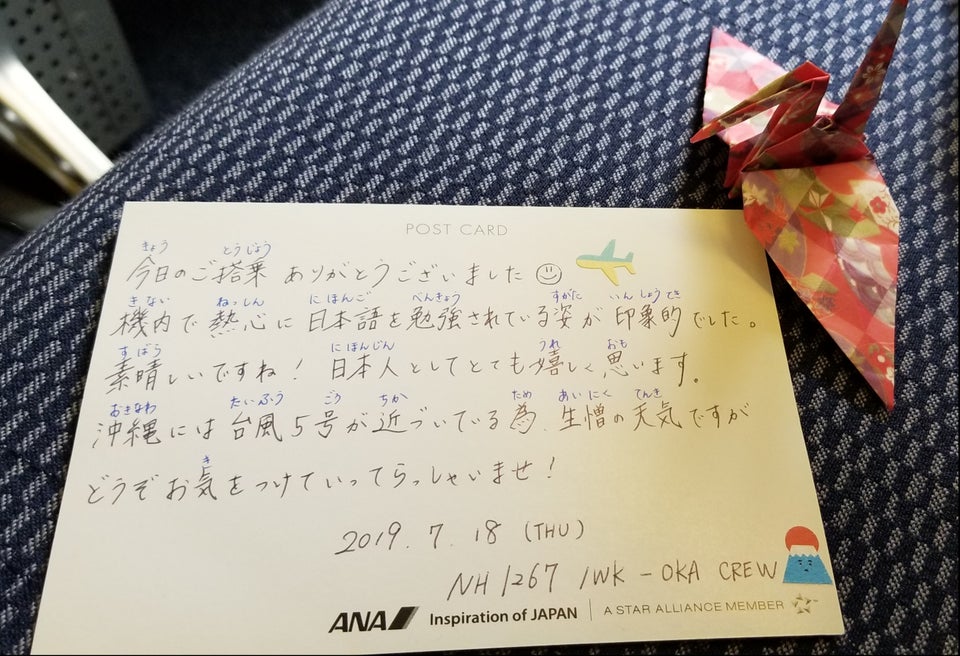 POST CARD
きょう とうじょう
今日のご搭乗 ありがとうございました
きない ねっしん にほんご べんきょう すがた いんしょうてき
機内で熱心に日本語を勉強されている姿が印象的でした。
すばら にほんじん うれ おも
素晴しいですね! 日本人としてとても嬉しく思います。
おきなわ たいふう ごう ちか ため あいにく てんき
沖縄には台風5号が近づいている為、生憎の天気ですが
き
どうぞお気をつけていってらっしゃいませ!
2019. 7. 18 (THU)
NH1267 IWK - OKA CREW
ANA Inspiration of JAPAN A STAR ALLIANCE MEMBER